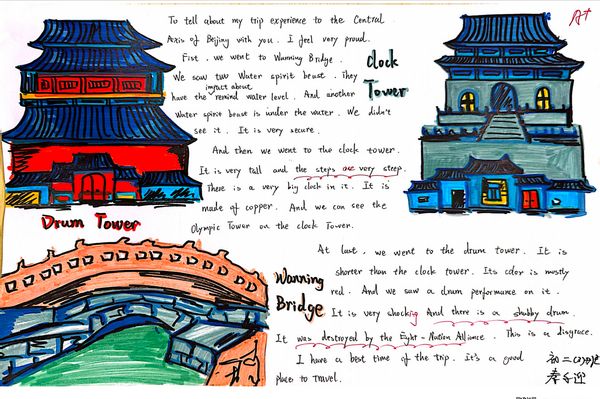 To tell about my trip experience to the Central
Axis of Beijing with you. I feel very proud.
Fist, we went to Wanning Bridge.
We saw two Water spirit beast. They
impact about
have the remind water level. And another
Water spirit beast is under the water. We didn't
see it. It is very secure.
And then we went to the clock tower.
It is very tall and the steps are very steep.
There is a very big clock in it. It is
made of copper. And we can see the
Olympic Tower on the clock Tower.
Clock
Tower
A+
Drum Tower
At last, we went to the drum tower. It is
shorter than the clock tower. Its color is mostly
red. And we saw a drum performance on it.
It is very shocking And there is a shabby drum.
It was destroyed by the Eight-Nation Alliance. This is a disgrace.
I have a best time of the trip. It's a good
place to travel.
Wanning
Bridge
初二(2)班